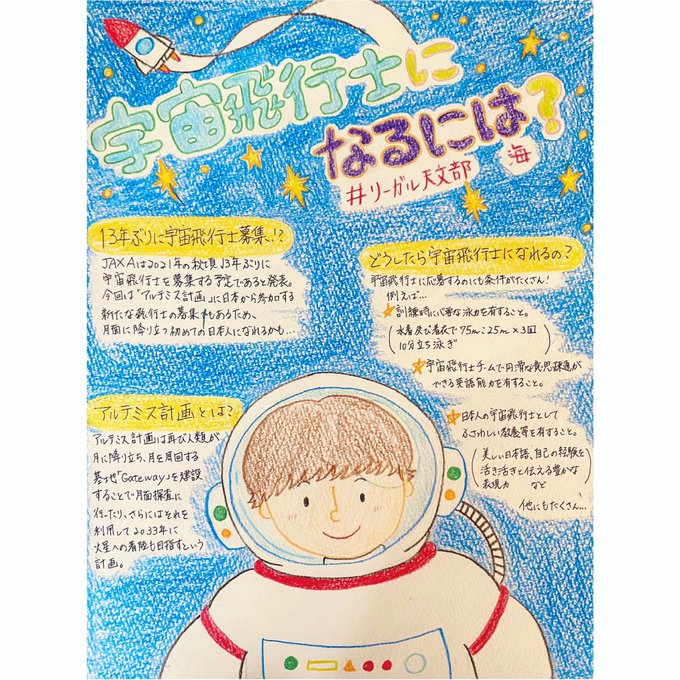 宇宙飛行士に
なるには?
#リーガル天文部
海
13年ぶりに宇宙飛行士募集!?
JAXAは2021年の秋頃13年ぶりに
宇宙飛行士を募集する予定であると発表。
今回は「アルテミス計画」に日本から参加する
新たな飛行士の募集もあるため、
月面に降り立つ初めての日本人になれるかも…
アルテミス計画とは?
アルテミス計画は再び人類が
月に降り立ち、月を周回する
基地「Gateway」を建設
することで月面探査に
行ったり、さらにはそれを
利用して2033年に
火星への着陸も目指すという
計画。
どうしたら宇宙飛行士になれるの?
宇宙飛行士に応募するのにも条件がたくさん!
例えば…
訓練時に必要な泳力を有すること。
(水着及び着衣で75m:25m×3回
10分立ち泳ぎ)
宇宙飛行士チームで円滑な意思疎通が
できる英語能力を有すること。
日本人の宇宙飛行士として
ふさわしい教養等を有すること。
(美しい日本語、自己の経験を
活き活きと伝える豊かな
表現力 など)
他にもたくさん…